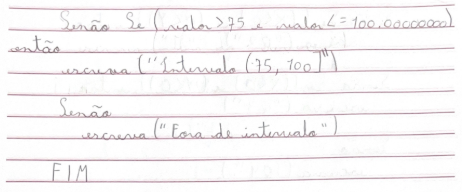 Senão Se (valor >75 e valor <= 100.00000000)
então
escreva ("Intervalo (75, 100]")
Senão
escreva ("Fora de intervalo")
FIM